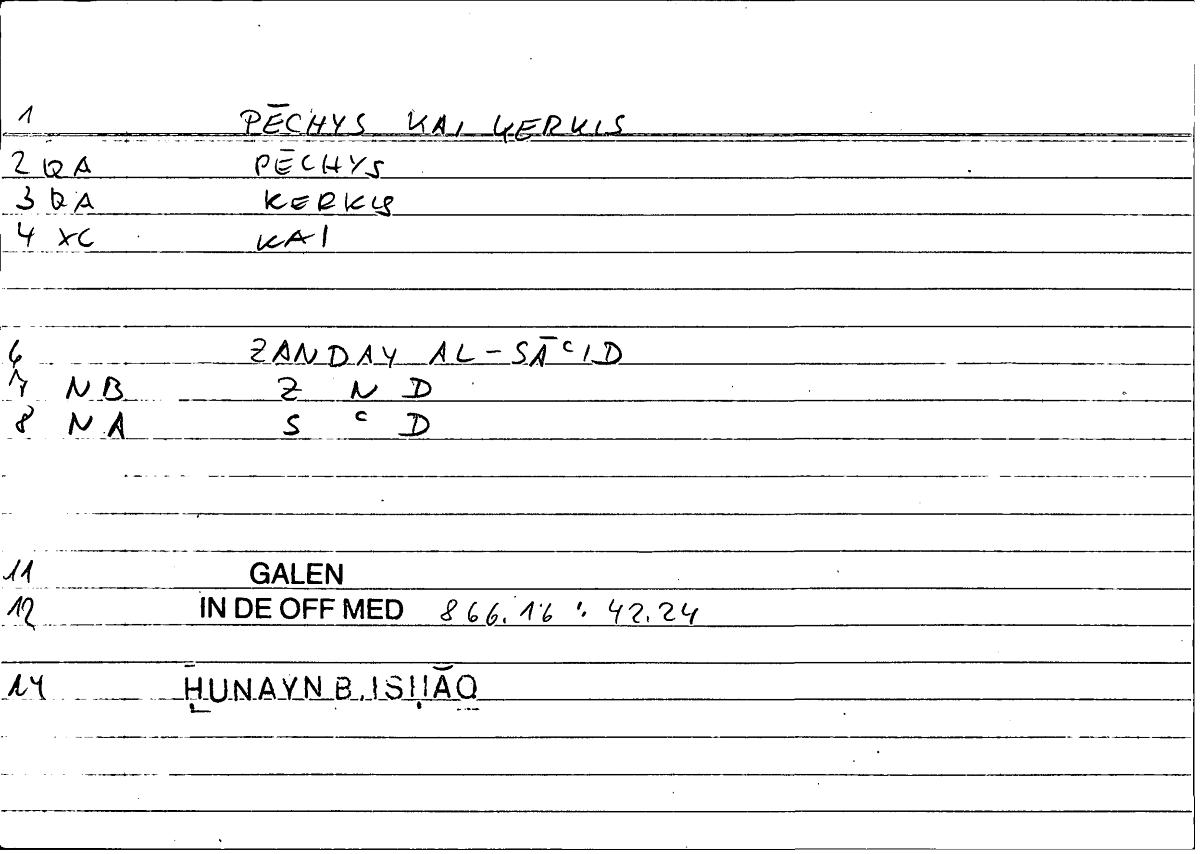 1 PĒCHYS KAI KERKIS
2 QA PĒCHYS
3 QA KERKIS
4 XC KAI
6 ZANDAY AL-SĀʿID
7 NB Z N D
8 NA S ʿ D
11 GALEN
12 IN DE OFF MED 866.16 : 42.24
14 ḤUNAYN B. ISḤĀQ